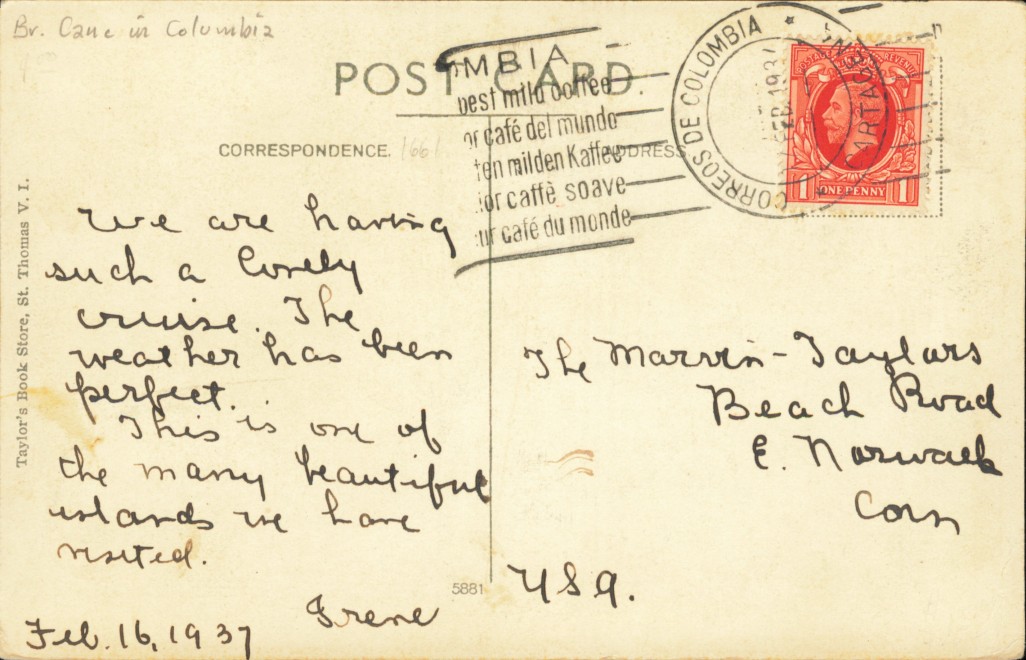 Br. Canc in Columbia
POST CARD.
CORRESPONDENCE.
1661
ADDRESS
MBIA
best mild coffee
or café del mundo
ten milden Kaffee
ior caffè soave
ur café du monde
CORREOS DE COLOMBIA *
CARTAGENA
FEB 1937
POSTAGE REVENUE
1 ONE PENNY 1
Taylor's Book Store, St. Thomas V. I.
We are having
such a lovely
cruise. The
weather has been
perfect.
This is one of
the many beautiful
islands we have
visited.
Irene
Feb. 16, 1937
5881
The Marvin-Taylors
Beach Road
E. Norwalk
Conn
USA.